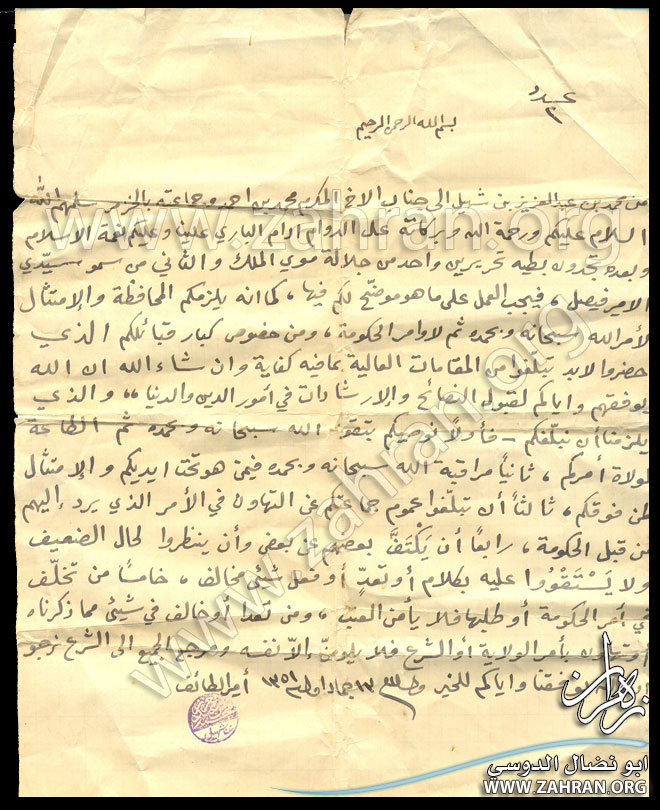 عدد
٢
بسم الله الرحمن الرحيم
من محمد بن عبد العزيز بن شهيل الى جناب الاخ المكرم محمد بن احمد وجماعته سلمهم الله
السلام عليكم ورحمة الله وبركاته على الدوام ادام الباري علينا وعليكم نعمة الاسلام
وبعده تجدون بطيه تحريرين واحد من جلالة موي الملك والثاني من سمو سيدي
الامر فيصل، فيجب العمل على ما هو موضح لكم فيها، كما انه يلزمكم المحافظة والإمتثال
لأمر الله سبحانه وبحمده ثم لاوامر الحكومة، ومن خصوص كبار قبائلكم الذي
حضروا لابد تبلغوا من المقامات العالية بمافيه كفاية وان شاء الله ان الله
يوفقهم واياكم لقبول النصائح والإرشادات في أمور الدين والدنيا،، والذي
يلزمنا أن نبلغكم - فأولاً نوصيكم بتقوى الله سبحانه وبحمده ثم الطاعة
لولاة أمركم، ثانياً مراقبة الله سبحانه وبحمده فيمن هو تحت ايديكم والإمتثال
لمن فوقكم، ثالثاً أن تبلغوا عموم جماعتكم عن التهاون في الأمر الذي يرد إليهم
من قبل الحكومة، رابعاً أن يكتف بعضهم عن بعض وأن ينظروا لحال الضعيف
ولا يستقووا عليه بكلام أو تعدٍّ أو فعل شئي مخالف، خامساً من تخلف
في أمر الحكومة أو طلبها فلا يأمن العتب، ومن تعدا أو خالف في شئي مما ذكرناه
أو تهاون بأمر الولاية أو الشرع فلا يلومنّ إلاّ نفسه ومرجع الجميع الى الشرع نرجو
الله يوفقنا واياكم للخير ١٣ جماد اول ١٣٥١ أمير الطائف
بن شهيل
www.zahran.org
www.zahran.org
www.zahran.org
زهران
ابو نضال الدوسي
WWW.ZAHRAN.ORG